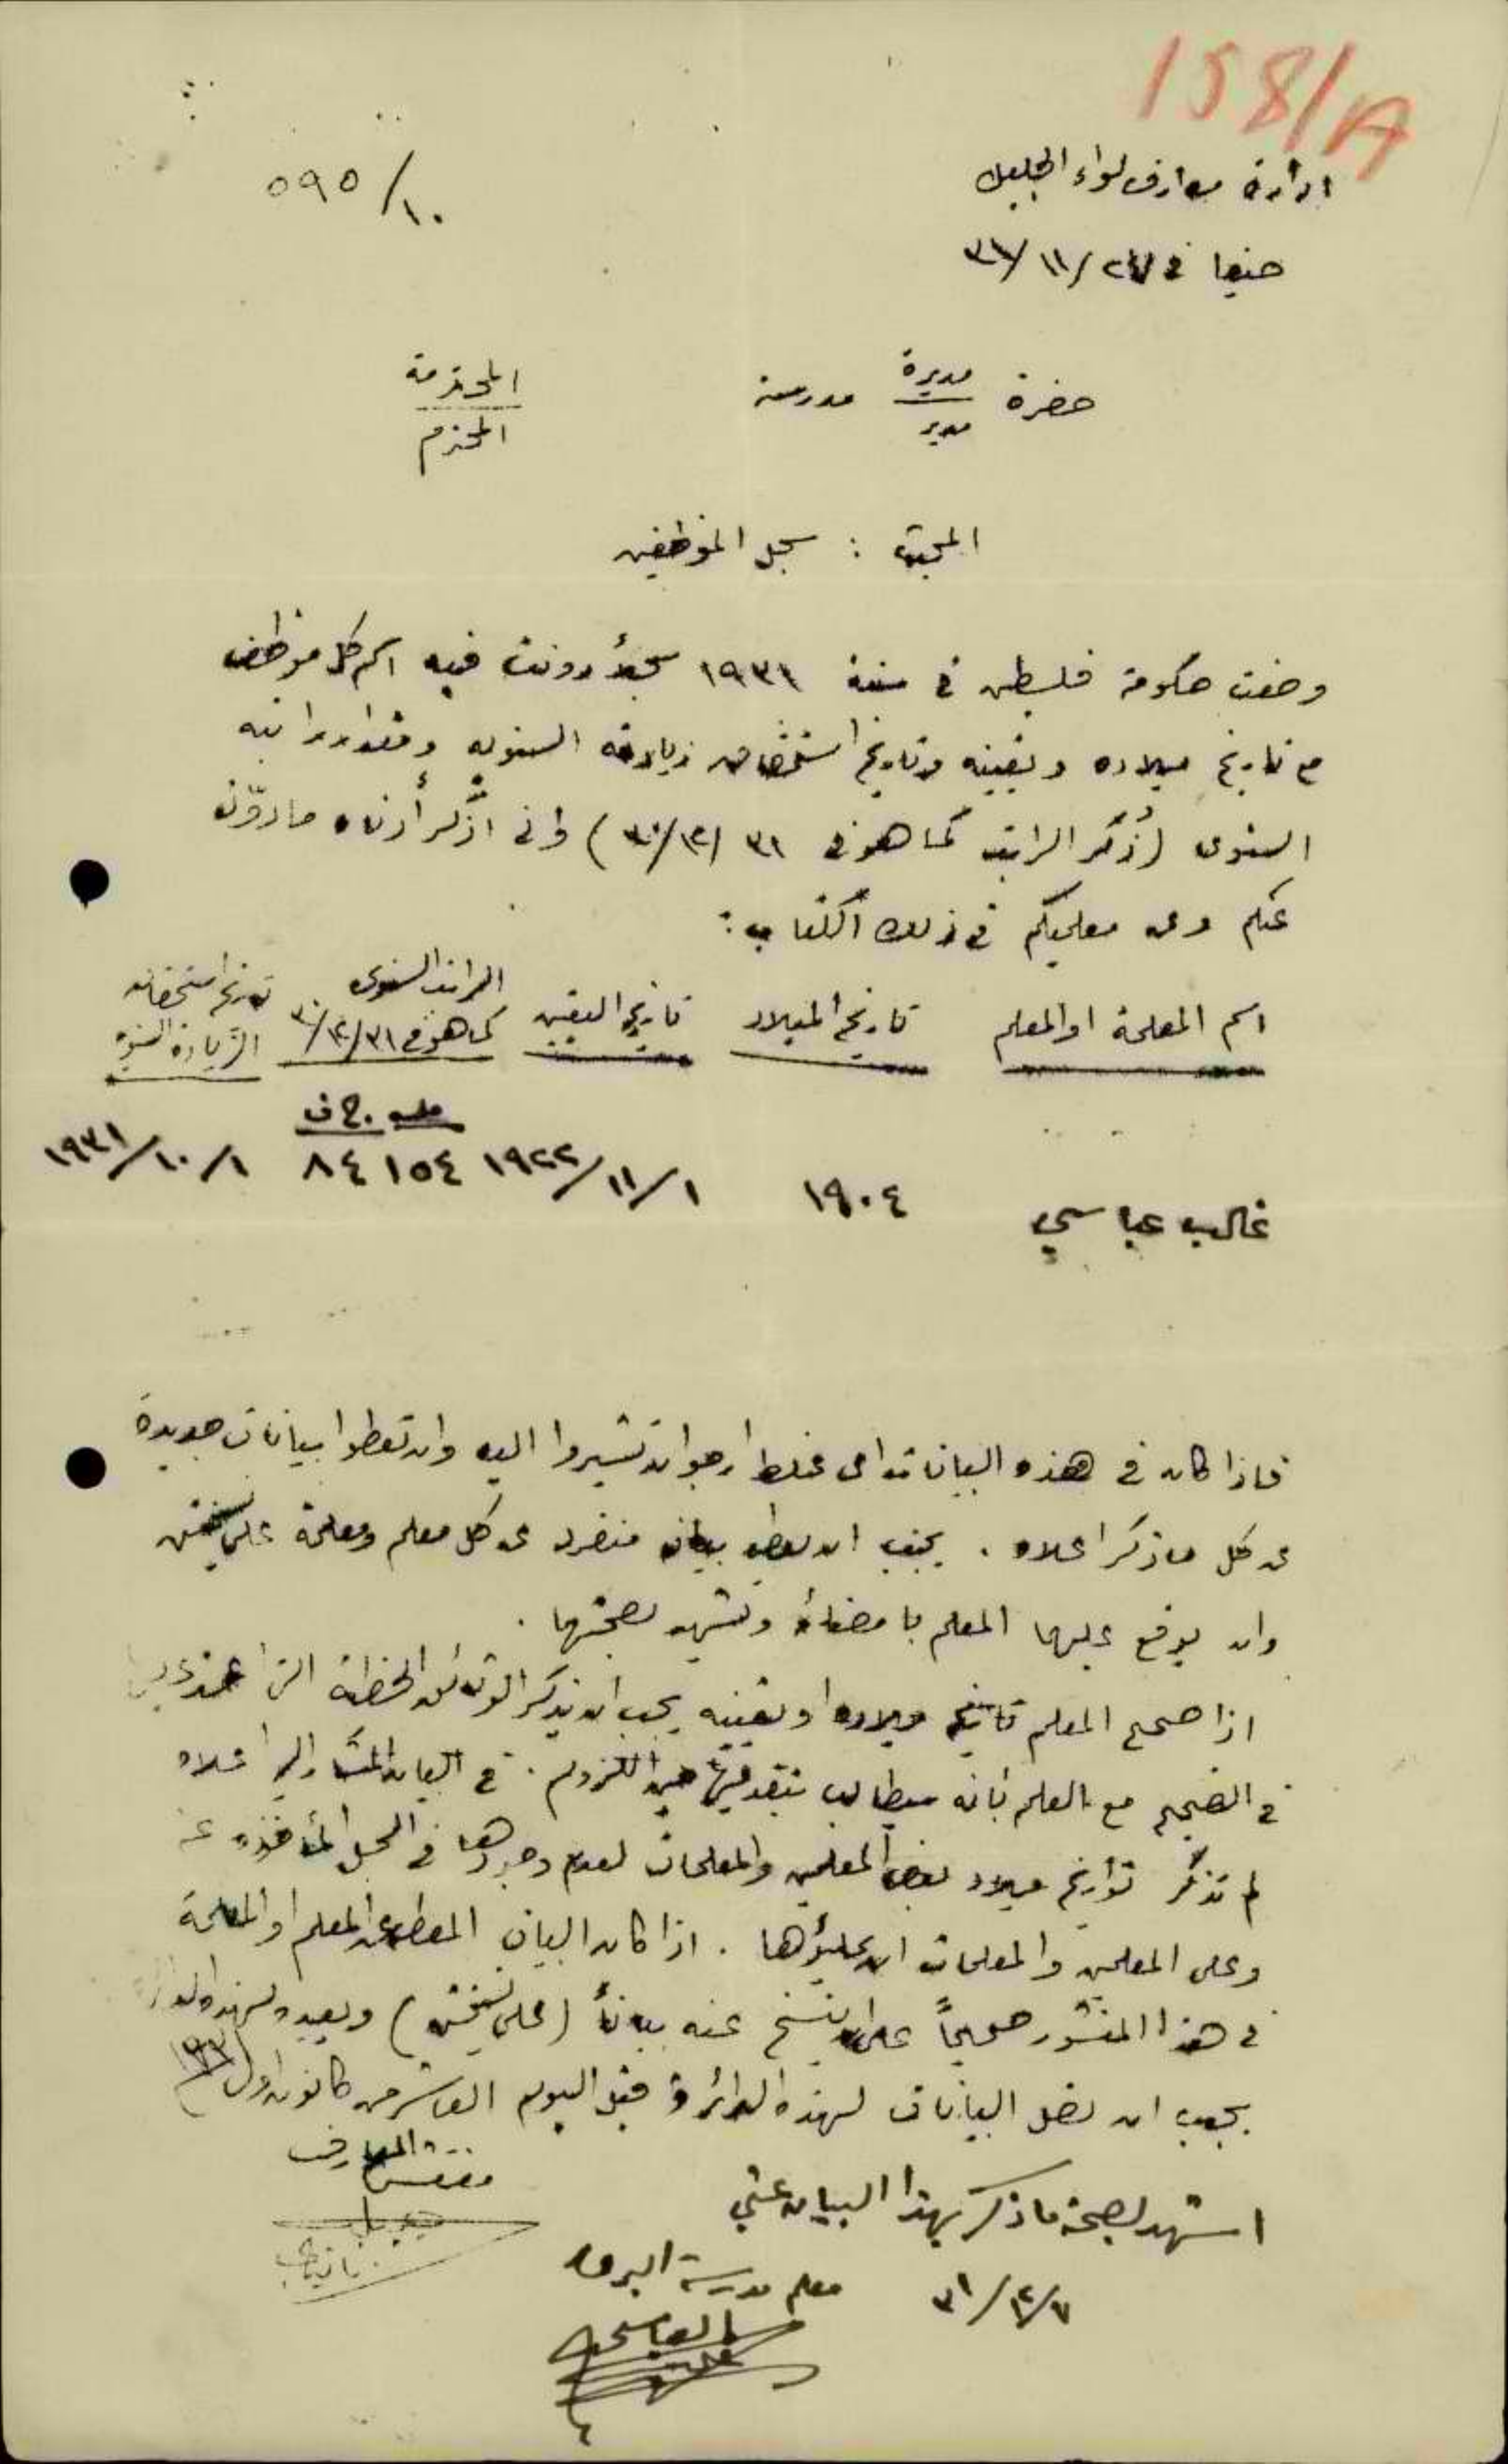 158/A
ادارة معارف لواء الجليل
٥٩٥/١٠
حيفا في ٢٧/١١/٣١
حضرة مديرة مدرسة المحترمة
مدير المحترم
المبحث : سجل الموظفين
وضعت حكومة فلسطين في سنة ١٩٣١ سجلاً دونت فيه اسم كل موظف
مع تاريخ ميلاده وتعيينه وتاريخ استحقاق زيادته السنوية ومقدار راتبه
السنوي (ذُكر الراتب كما هو في ٣١/١٢/٣٠) واني اذكر أدناه ما دوّن
عنكم وعن معلميكم في ذلك الكتاب :
اسم المعلمة او المعلم تاريخ الميلاد تاريخ التعيين الراتب السنوي كما هو في ٣١/١٢/٣٠ تاريخ استحقاق الزيادة السنوية
مل ج ف
غالب عباسي ١٩٠٤ ١/١١/١٩٢٢ ١٥٤ ٨٤ ١/١٠/١٩٣١
فاذا كان في هذه البيانات اي غلط ارجو ان تشيروا اليه وان تعطوا بيانات جديدة
عن كل ما ذكر اعلاه . يجب ان يعطى بيان منفرد عن كل معلم ومعلمة على نسختين
وان يوقع عليها المعلم بامضائه وتشهد بصحتها .
اذا صحح المعلم تاريخ ميلاده او تعيينه يجب ان يذكر الوثائق الخطية التي اعتمد عليها
في التصحيح مع العلم بأنه سيطالب بتقديمها حين اللزوم . في البيان المشار اليه اعلاه
لم تذكر تواريخ ميلاد بعض المعلمين والمعلمات لعدم وجودها في السجل المأخوذه عنه
وعلى المعلمين والمعلمات ان يملؤها . اذا كان البيان المعطى عن المعلم او المعلمة
في هذا المنشور صحيحاً على ان ينسخ عنه بياناً (على نسختين) ويعيده لهذه الدائرة
يجب ان تصل البيانات لهذه الدائرة قبل اليوم العاشر من كانون اول ١٩٣١
مفتش المعارف
اشهد بصحة ما ذكر بهذا البيان عني
٧/١٢/٣١ معلم مدرسة البروه